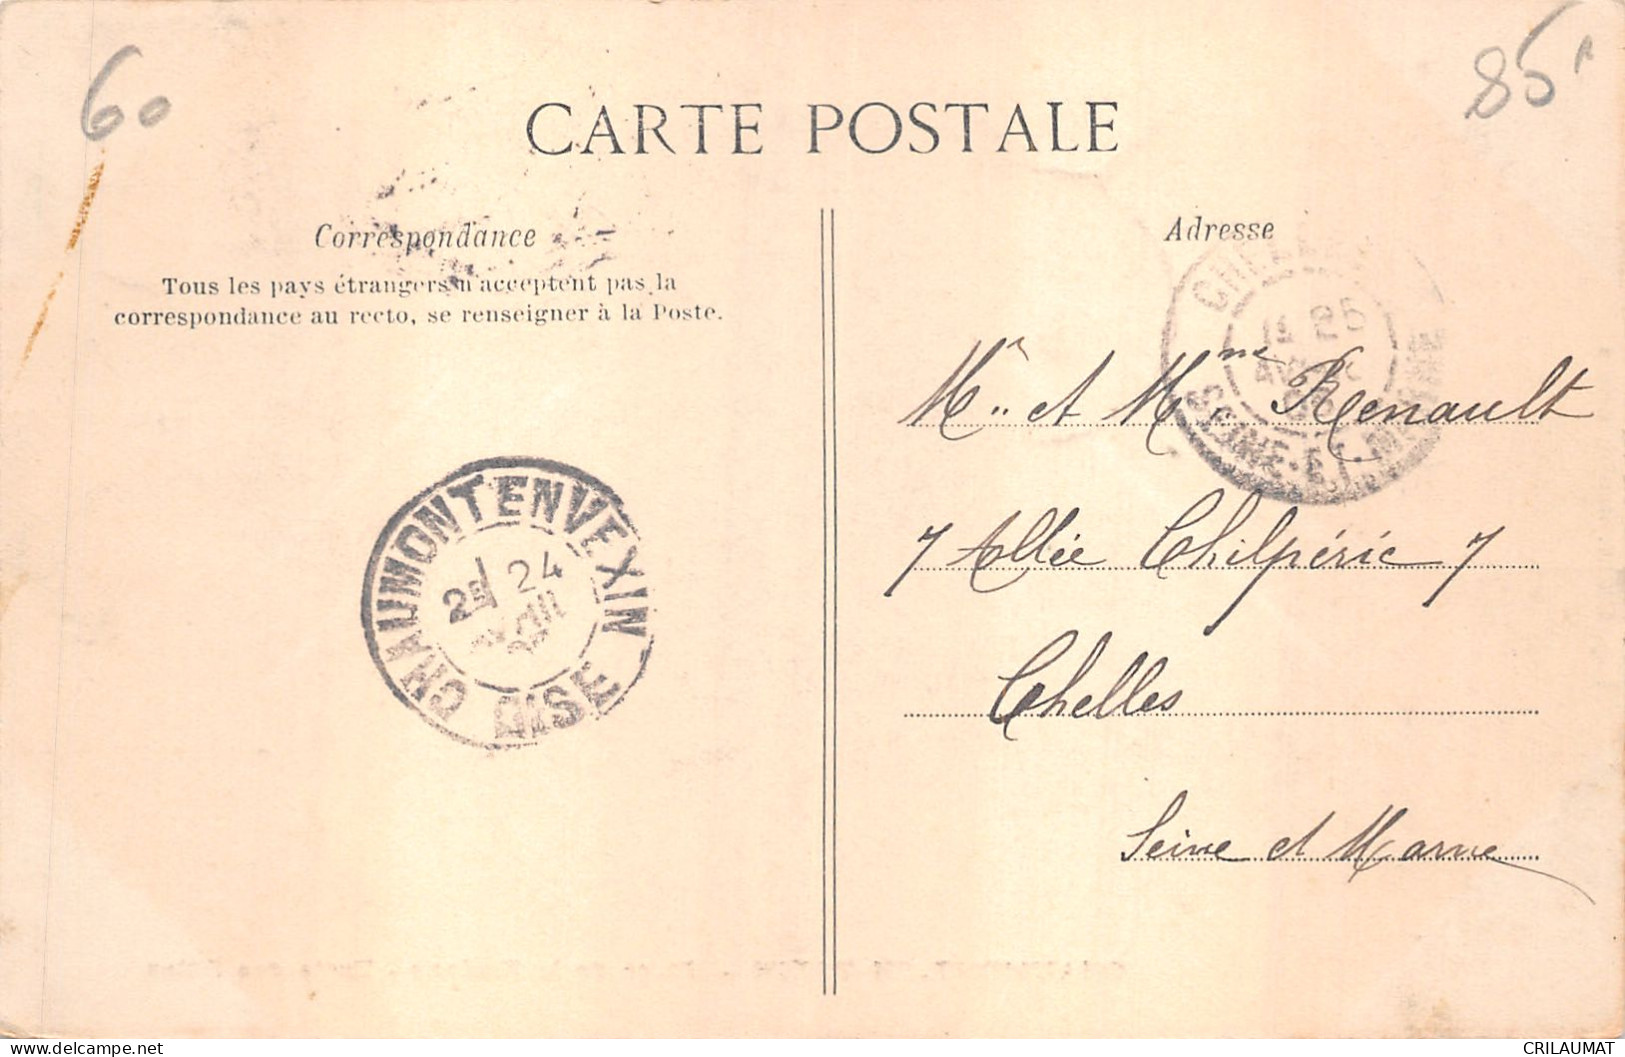 60
85
CARTE POSTALE
Correspondance
Tous les pays étrangers n'acceptent pas la
correspondance au recto, se renseigner à la Poste.
Adresse
Mr et Mme Renault
7 Allée Chilpéric 7
Chelles
Seine et Marne
CHAUMONT EN VEXIN
24
OISE
SEINE-ET-MARNE
25
www.delcampe.net
CRILAUMAT